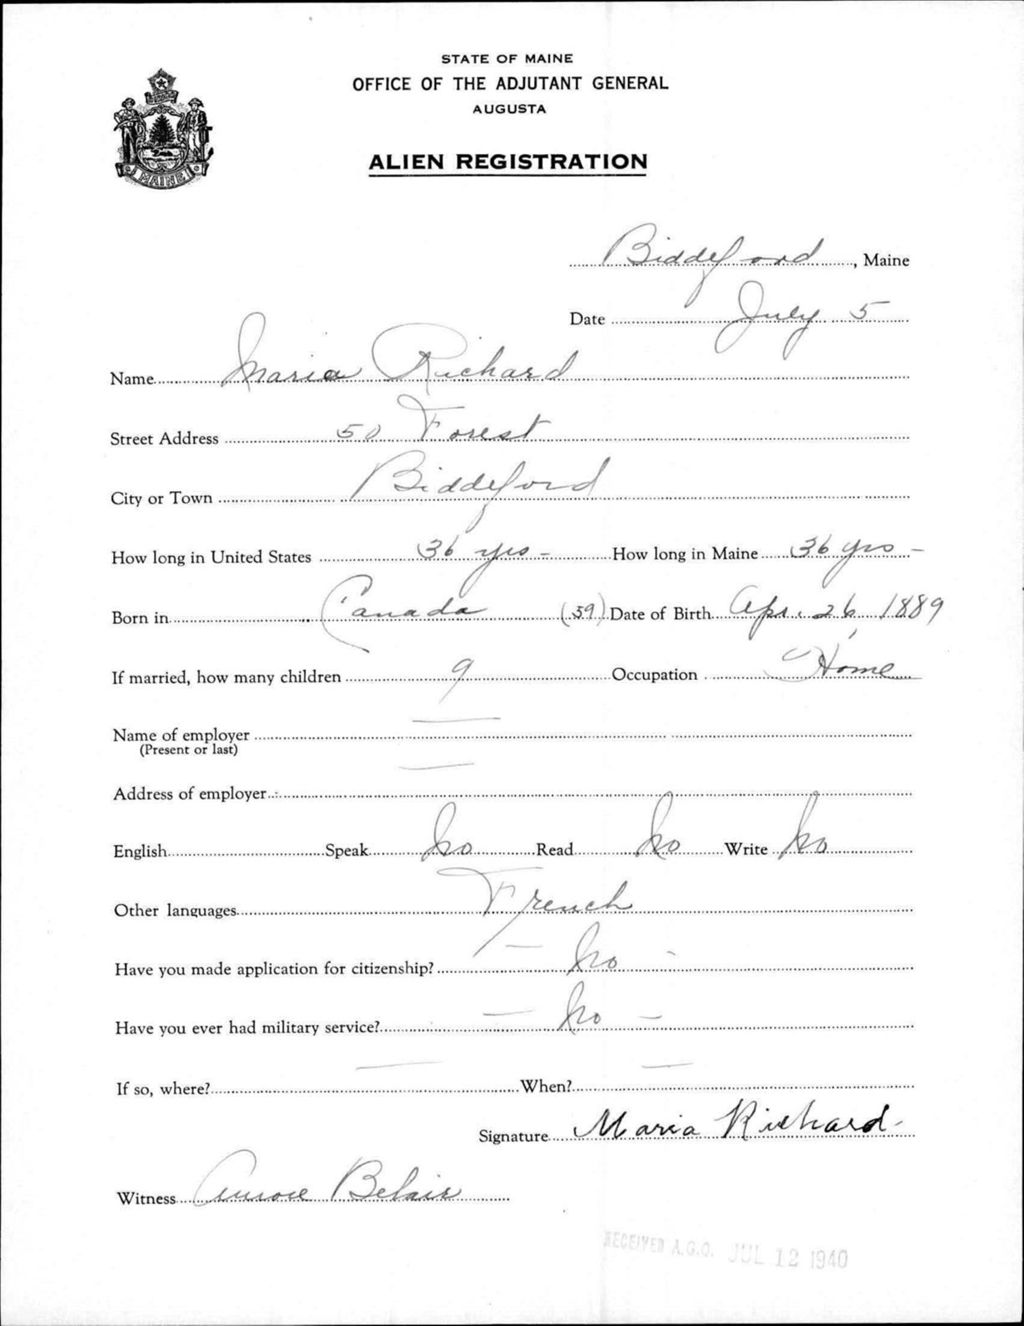 STATE OF MAINE
OFFICE OF THE ADJUTANT GENERAL
AUGUSTA
MAINE
ALIEN REGISTRATION
Biddeford, Maine
Date July 5
Name Maria Richard
Street Address 50 Forest
City or Town Biddeford
How long in United States 36 yrs - How long in Maine 36 yrs -
Born in Canada (59) Date of Birth Apr. 26, 1889
If married, how many children 9 Occupation Home
Name of employer —
(Present or last)
Address of employer —
English Speak No Read No Write No
Other languages French
Have you made application for citizenship? — No -
Have you ever had military service? — No —
If so, where? — When? —
Signature Maria Richard
Witness Aurore Belair
RECEIVED A.G.O. JUL 12 1940